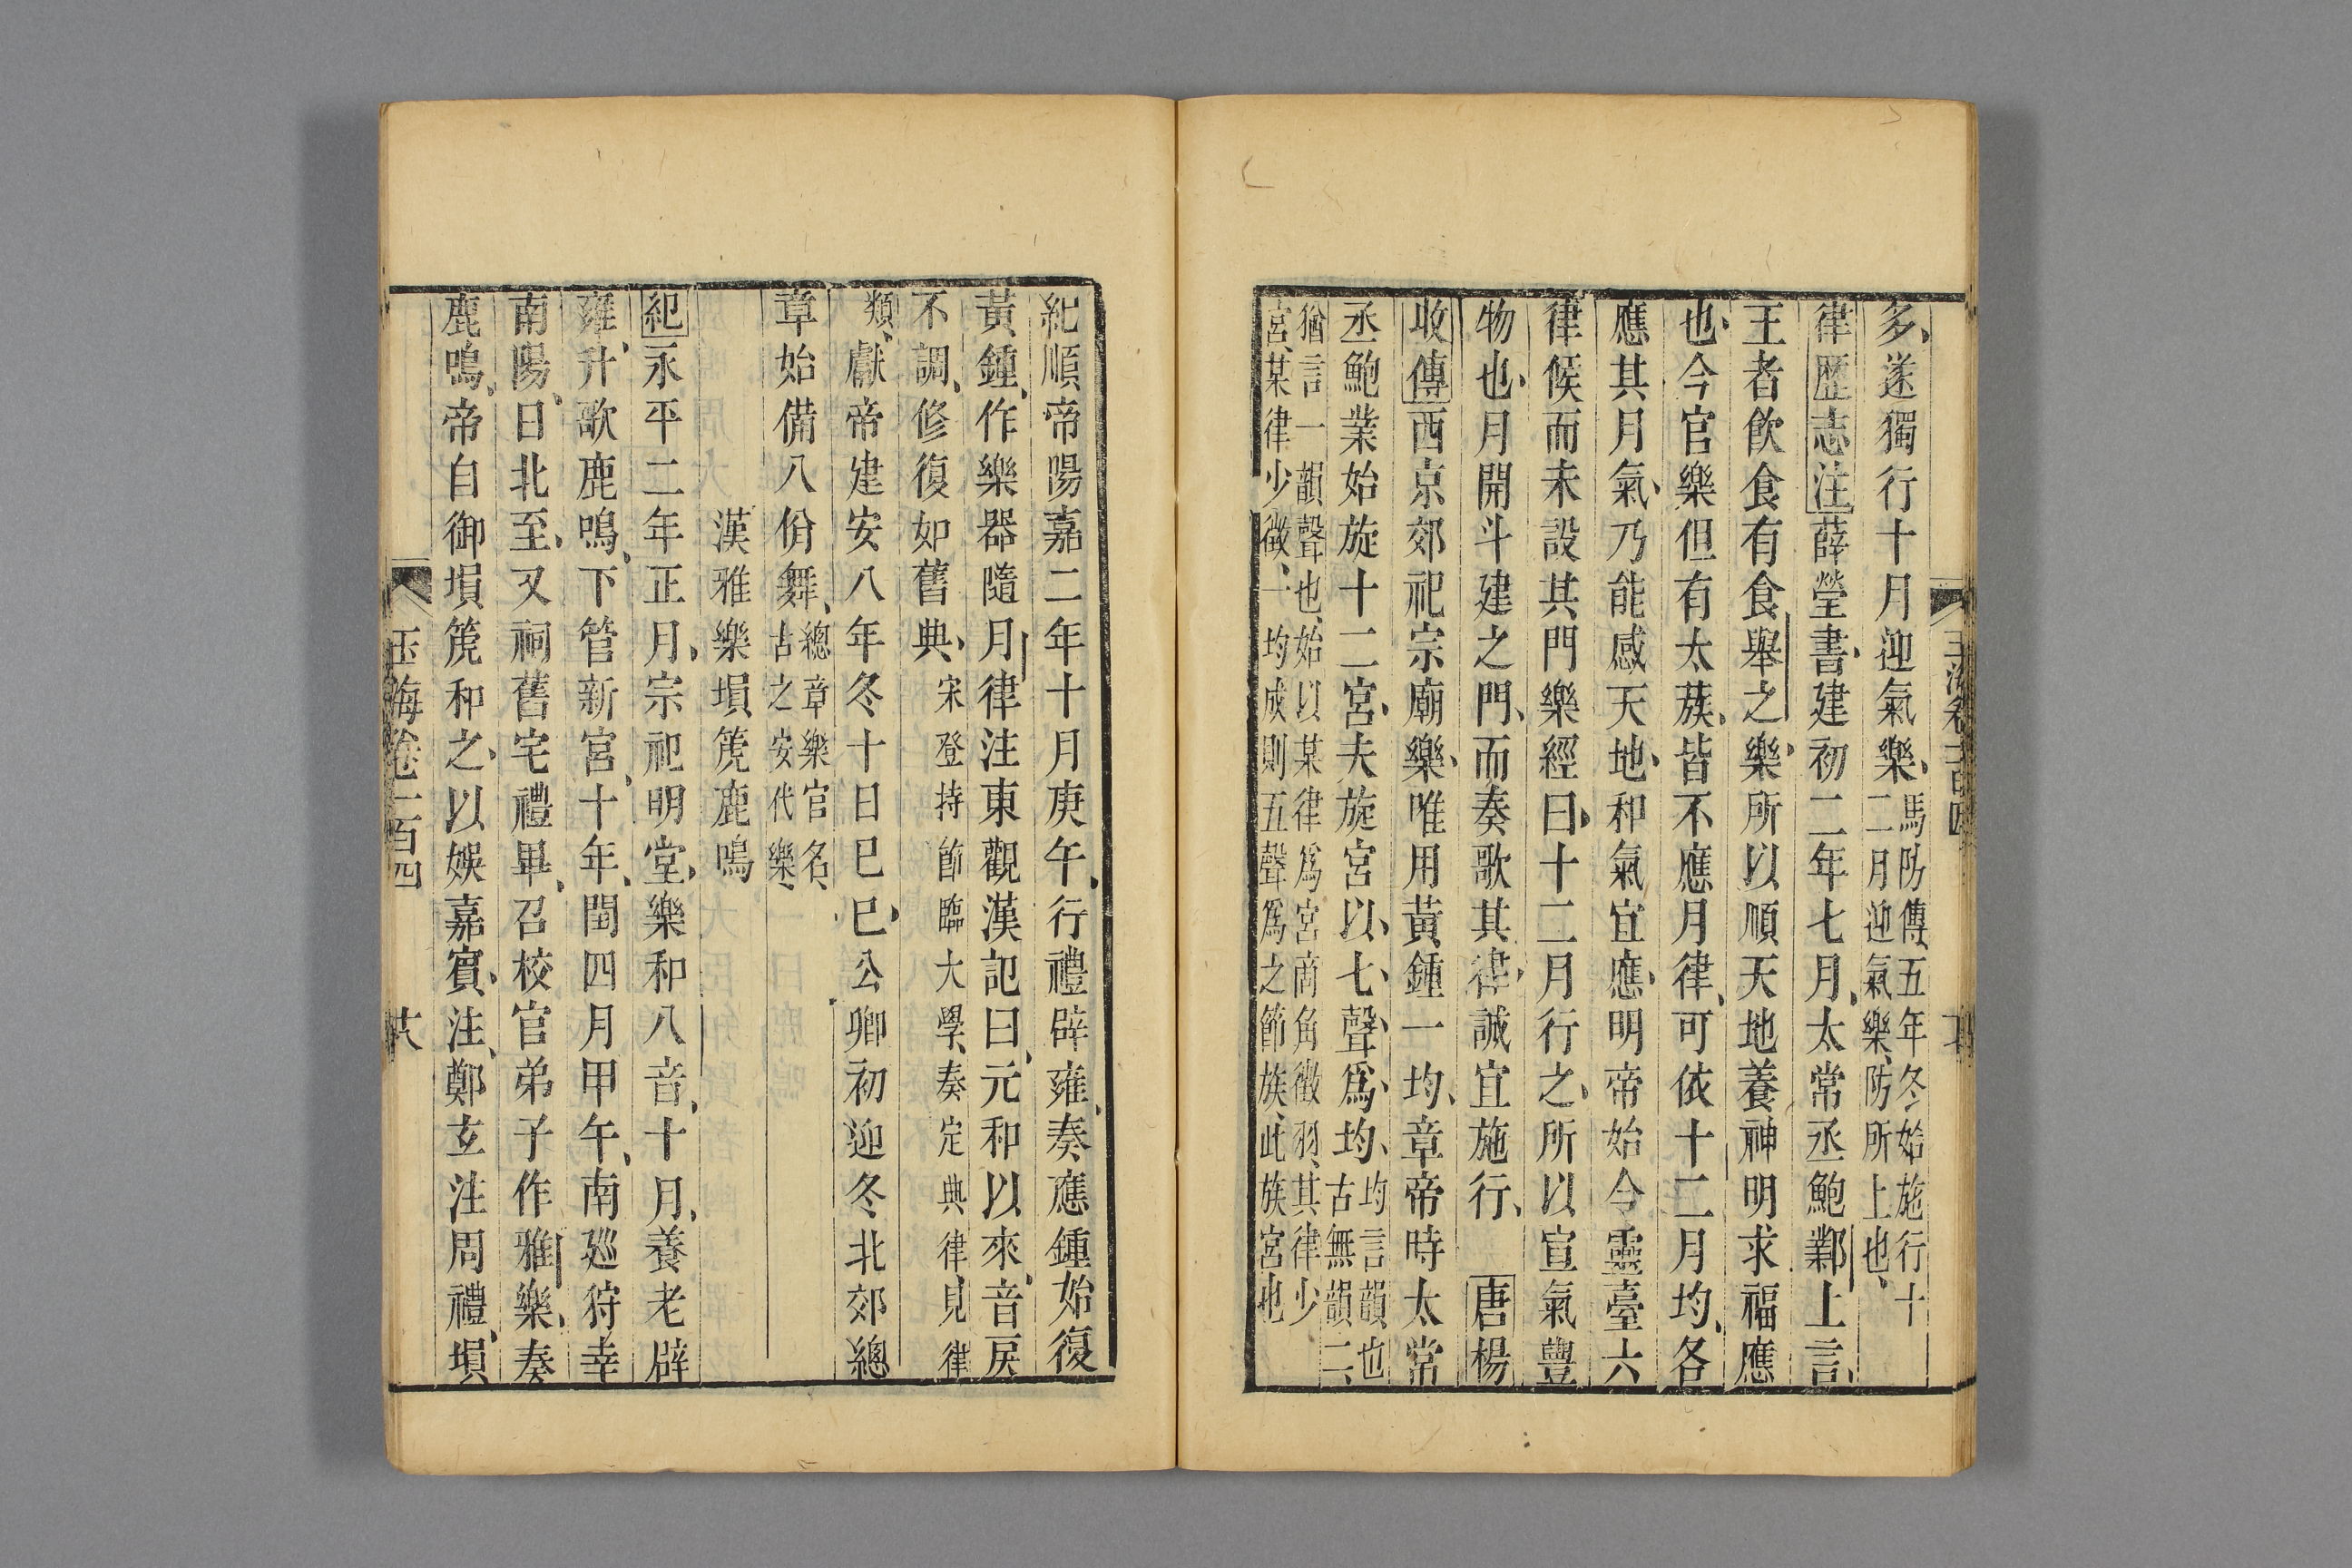 多遂獨行十月迎氣樂馬防傳五年冬始施行十二月迎氣樂防所上也
律歷志注薛瑩書建初二年七月太常丞鮑鄴上言
王者飲食有食舉之樂所以順天地養神明求福應
也今官樂但有太蔟皆不應月律可依十二月均各
應其月氣乃能感天地和氣宜應明帝始令靈臺六
律候而未設其門樂經曰十二月行之所以宣氣豐
物也月開斗建之門而奏歌其律誠宜施行 唐楊
收傳西京郊祀宗廟樂唯用黃鍾一均章帝時太常
丞鮑業始旋十二宮夫旋宮以七聲爲均均言韻也古無韻二
猶言一韻聲也始以某律爲宮商角徵羽其律少
宮某律少徵一均成則五聲爲之節族此族宮也
紀順帝陽嘉二年十月庚午行禮辟雍奏應鍾始復
黃鍾作樂器隨月律注東觀漢記曰元和以來音戾
不調修復如舊典宋登持節臨大學奏定典律見律
類獻帝建安八年冬十日巳巳公卿初迎冬北郊總
章始備八佾舞總章樂官名古之安代樂
漢雅樂塤篪鹿鳴
紀永平二年正月宗祀明堂樂和八音十月養老辟
雍升歌鹿鳴下管新宮十年閏四月甲午南廵狩幸
南陽日北至又祠舊宅禮畢召校官弟子作雅樂奏
鹿鳴帝自御塤篪和之以娛嘉賓注鄭玄注周禮塤
玉海卷一百四